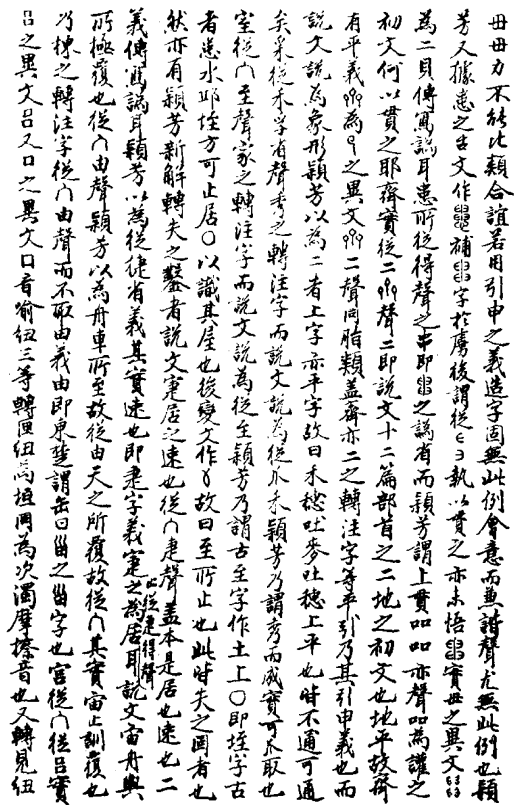 毌毌力不能比類合誼若用引申之義造字固無此例會意而兼諧聲尤無此例也穎
芳又據患之古文作補字於虜後謂從執以貫之亦未悟實毌之異文
為二貝傳寫譌耳患所從得聲之串即之譌者而穎芳謂上貫吅吅亦聲吅為讙之
初文何以貫之耶齊實從二聲二即說文十二篇部首之二地之初文也地平故齊
有平義為之異文二聲同脂類蓋齊亦二之轉注字等平引乃其引申義也而
說文說為象形穎芳以為二者上字亦平字故曰禾穗吐麥吐穗上平也皆不通可通
矣采從禾字有聲秀之轉注字而說文說為從爪禾穎芳乃謂秀而成實可爪取也
室從宀至聲家之轉注字而說文說為從至穎芳乃謂古至字作土上〇即垤字古
者患水邱垤方可止居〇以識其厓也後變文作故曰至所止也此皆失之固者也
然亦有穎芳新解轉失之鑿者說文寁居之速也從宀疌聲蓋本是居也速也二
義傳寫譌耳穎芳以為從倢省義其實速也即疌字義寁之為居耳說文宙舟輿
此從疌得聲
所極覆也從宀由聲穎芳以為舟車所至故從由天之所覆故從宀其實宙止訓覆也
乃棟之轉注字從宀由聲而不取由義由即東楚謂缶曰甾之甾字也宮從宀從呂實
呂之異文呂又口之異文口音喻紐三等轉匣紐為垣同為次濁摩擦音也又轉見紐